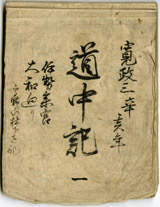 寛政三辛亥年
道中記 一
伊勢参宮
大和廻り